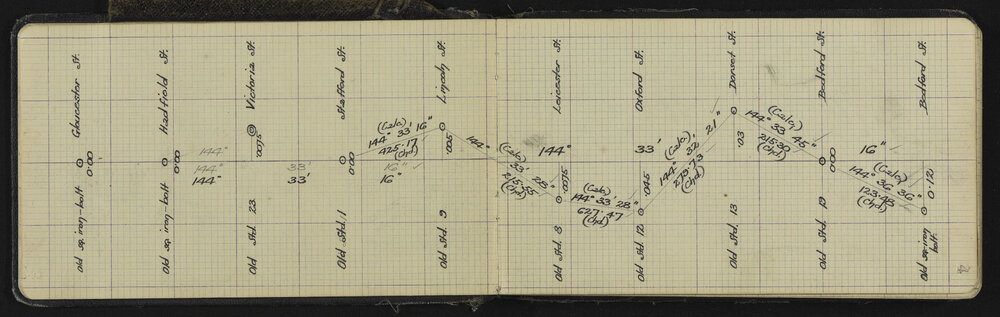 Gloucester St.
0.00
Old sq. iron-bolt
Hadfield St.
0.00
Old sq. iron-bolt
144°
144° 33' 16"
144° 33' 16"
Victoria St.
.0075
Old Std. 23
Stafford St.
0.00
Old Std. 1
(Calc)
144° 33' 16"
425.17
(Chd)
Lincoln St.
.005
Old Std. 9
144°
(Calc)
33' 28"
215.55
(Chd)
Leicester St.
144° 33' 16"
.0075
Old Std. 8
(Calc)
144° 33' 28"
627.47
(Chd)
Oxford St.
.045
Old Std. 12
(Calc)
144° 32' 21"
275.73
(Chd)
Dorset St.
.03
Old Std. 13
(Calc)
144° 33' 45"
215.30
(Chd)
Bedford St.
0.00
Old Std. 19
(Calc)
144° 36' 36"
123.48
(Chd)
Bedford St.
0.120
Old sq. iron bolt.